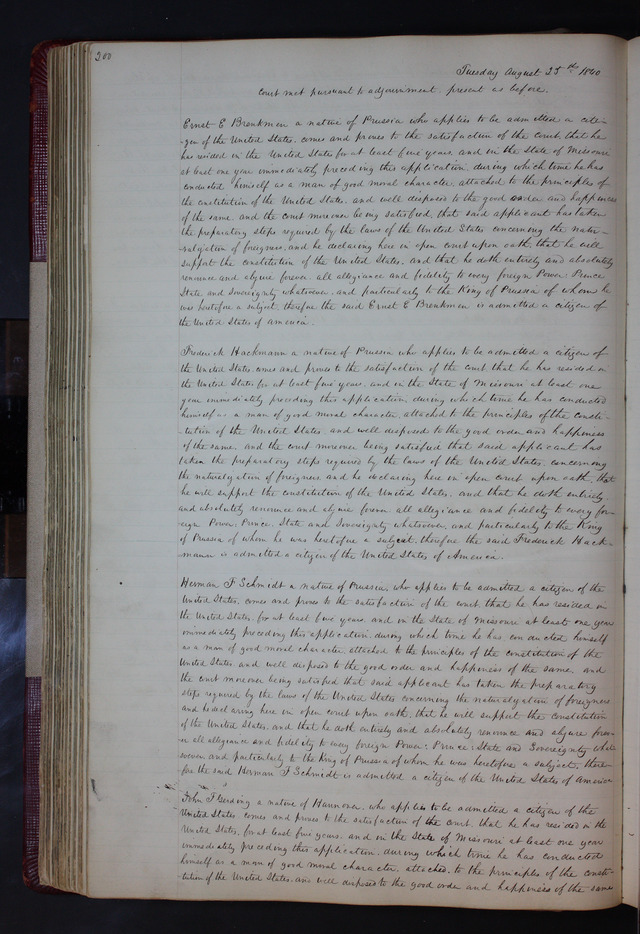 200
Tuesday August 25th 1840
Court met pursuant to adjournment. present as before.
Ernst E Brenkman a native of Prussia who applies to be admitted a citi-
-zen of the United States. comes and proves to the satisfaction of the court that he
has resided in the United States for at least five years, and in the State of Missouri
at least one year immediately preceding this application during which time he has
conducted himself as a man of good moral character, attached to the principles of
the constitution of the United State. and well disposed to the good order and happiness
of the same. and the court moreover being satisfied, that said applicant has taken
the preparatory steps required by the laws of the United States concerning the natu-
-ralization of foreigners, and he declaring here in open court upon oath, that he will
support the constitution of the United States, and that he doth entirely and absolutely
renounce and abjure forever all allegiance and fidelity to every foreign Power, Prince
State and Sovereignty whatsoever. and particularly to the King of Prussia of whom he
was heretofore a subject, therefore the said Ernst E Brenkman is admitted a citizen of
the United States of America.
Frederick Hackmann a native of Prussia who applies to be admitted a citizen of
the United States, comes and proves to the satisfaction of the court that he has resided in
the United States for at least five years, and in the State of Missouri at least one
year immediately preceding this application during which time he has conducted
himself as a man of good moral character attached to the principles of the consti-
-tution of the United States and well disposed to the good order and happiness
of the same. and the court moreover being satisfied that said applicant has
taken the preparatory steps required by the laws of the United States. concerning
the naturalization of foreigners and he declaring here in open court upon oath, that
he will support the constitution of the United States, and that he doth entirely
and absolutely renounce and abjure forever all allegiance and fidelity to every for-
-eign Power, Prince, State and Sovereignty whatsoever, and particularly to the King
of Prussia of whom he was heretofore a subject, therefore the said Frederick Hack-
mann is admitted a citizen of the United States of America.
Herman F Schmidt a native of Prussia, who applies to be admitted a citizen of the
United States, comes and proves to the satisfaction of the court, that he has resided in
the United States, for at least five years, and in the State of Missouri at least one year
immediately preceding this application, during which time he has conducted himself
as a man of good moral character, attached to the principles of the constitution of the
United States, and well disposed to the good order and happiness of the same, and
the court moreover being satisfied that said applicant has taken the preparatory
steps required by the laws of the United States concerning the naturalization of foreigners
and he declaring here in open court upon oath, that he will support the constitution
of the United States, and that he doth entirely and absolutely renounce and abjure forev-
er all allegiance and fidelity to every foreign Power, Prince, State and Sovereignty what-
soever, and particularly to the King of Prussia of whom he was heretofore a subject, there-
fore the said Herman F Schmidt is admitted a citizen of the United States of America
John F Gerding a native of Hannover, who applies to be admitted a citizen of the
United States, comes and proves to the satisfaction of the court, that he has resided in the
United States, for at least five years, and in the State of Missouri at least one year
immediately preceding this application, during which time he has conducted
himself as a man of good moral character, attached, to the principles of the consti-
tution of the United States, and well disposed to the good order and happiness of the same